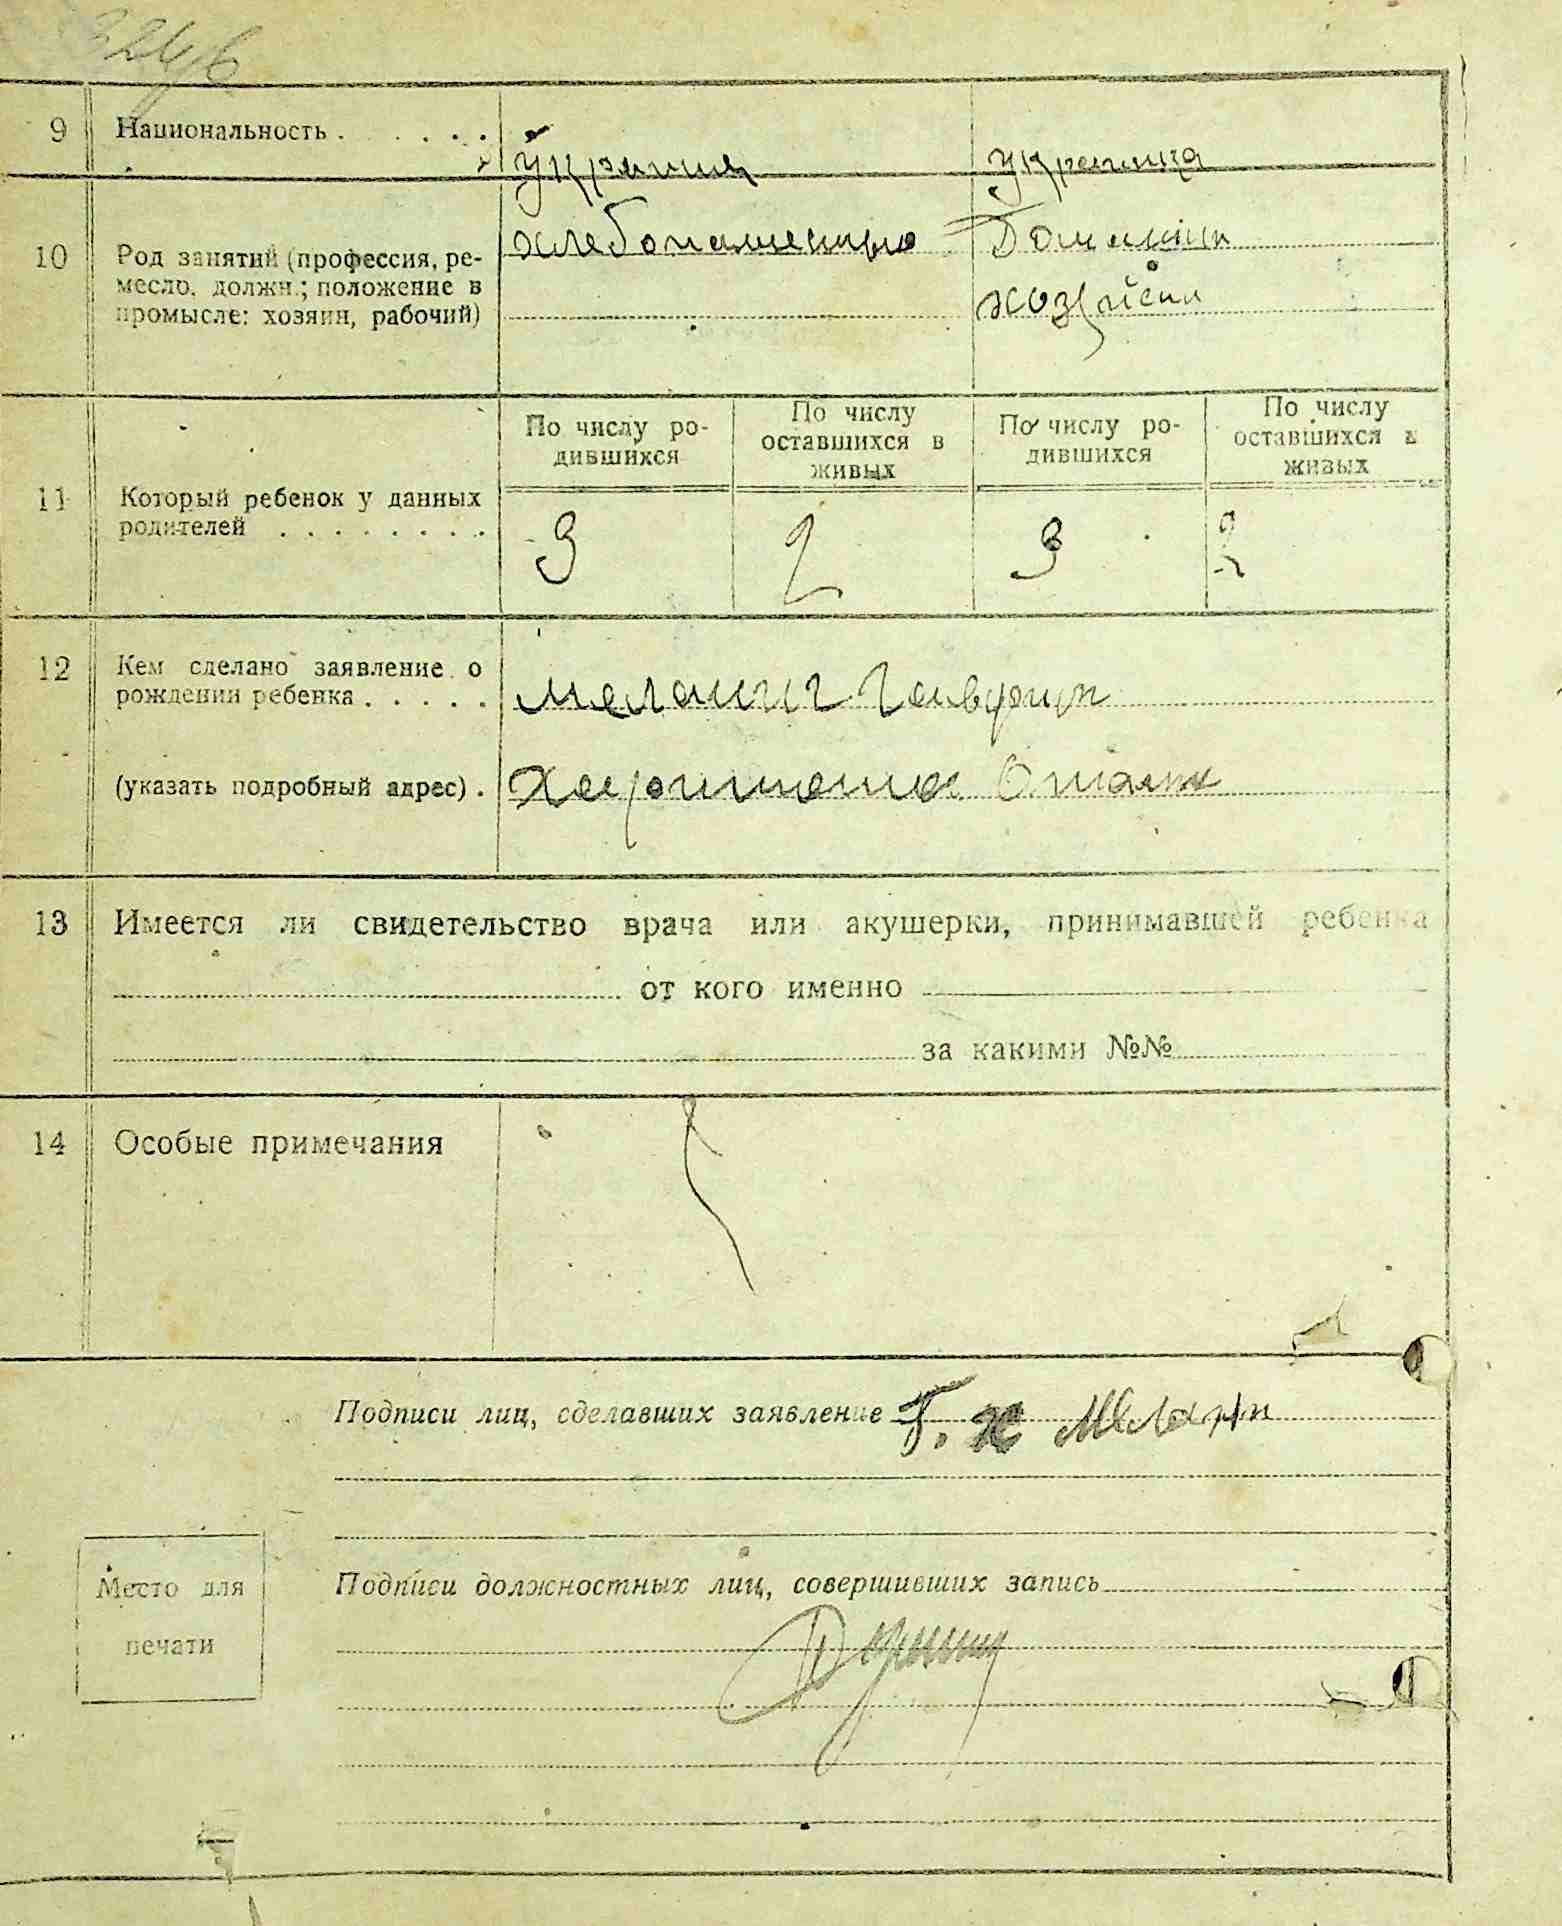 9 Национальность . . . . . .
Украинец Украинка
10 Род занятий (профессия, ре-
месло, должн.; положение в
промысле: хозяин, рабочий)
хлебопашество Домашняя
хозяйка
11 Который ребенок у данных
родителей . . . . . . . .
По числу ро-
дившихся
По числу
оставшихся в
живых
По числу ро-
дившихся
По числу
оставшихся в
живых
3 2 3 2
12 Кем сделано заявление о
рождении ребенка . . . . .
(указать подробный адрес) .
13 Имеется ли свидетельство врача или акушерки, принимавшей ребенка
от кого именно
за какими №№
14 Особые примечания
Подписи лиц, сделавших заявление Г. Х
Место для
печати
Подписи должностных лиц, совершивших запись